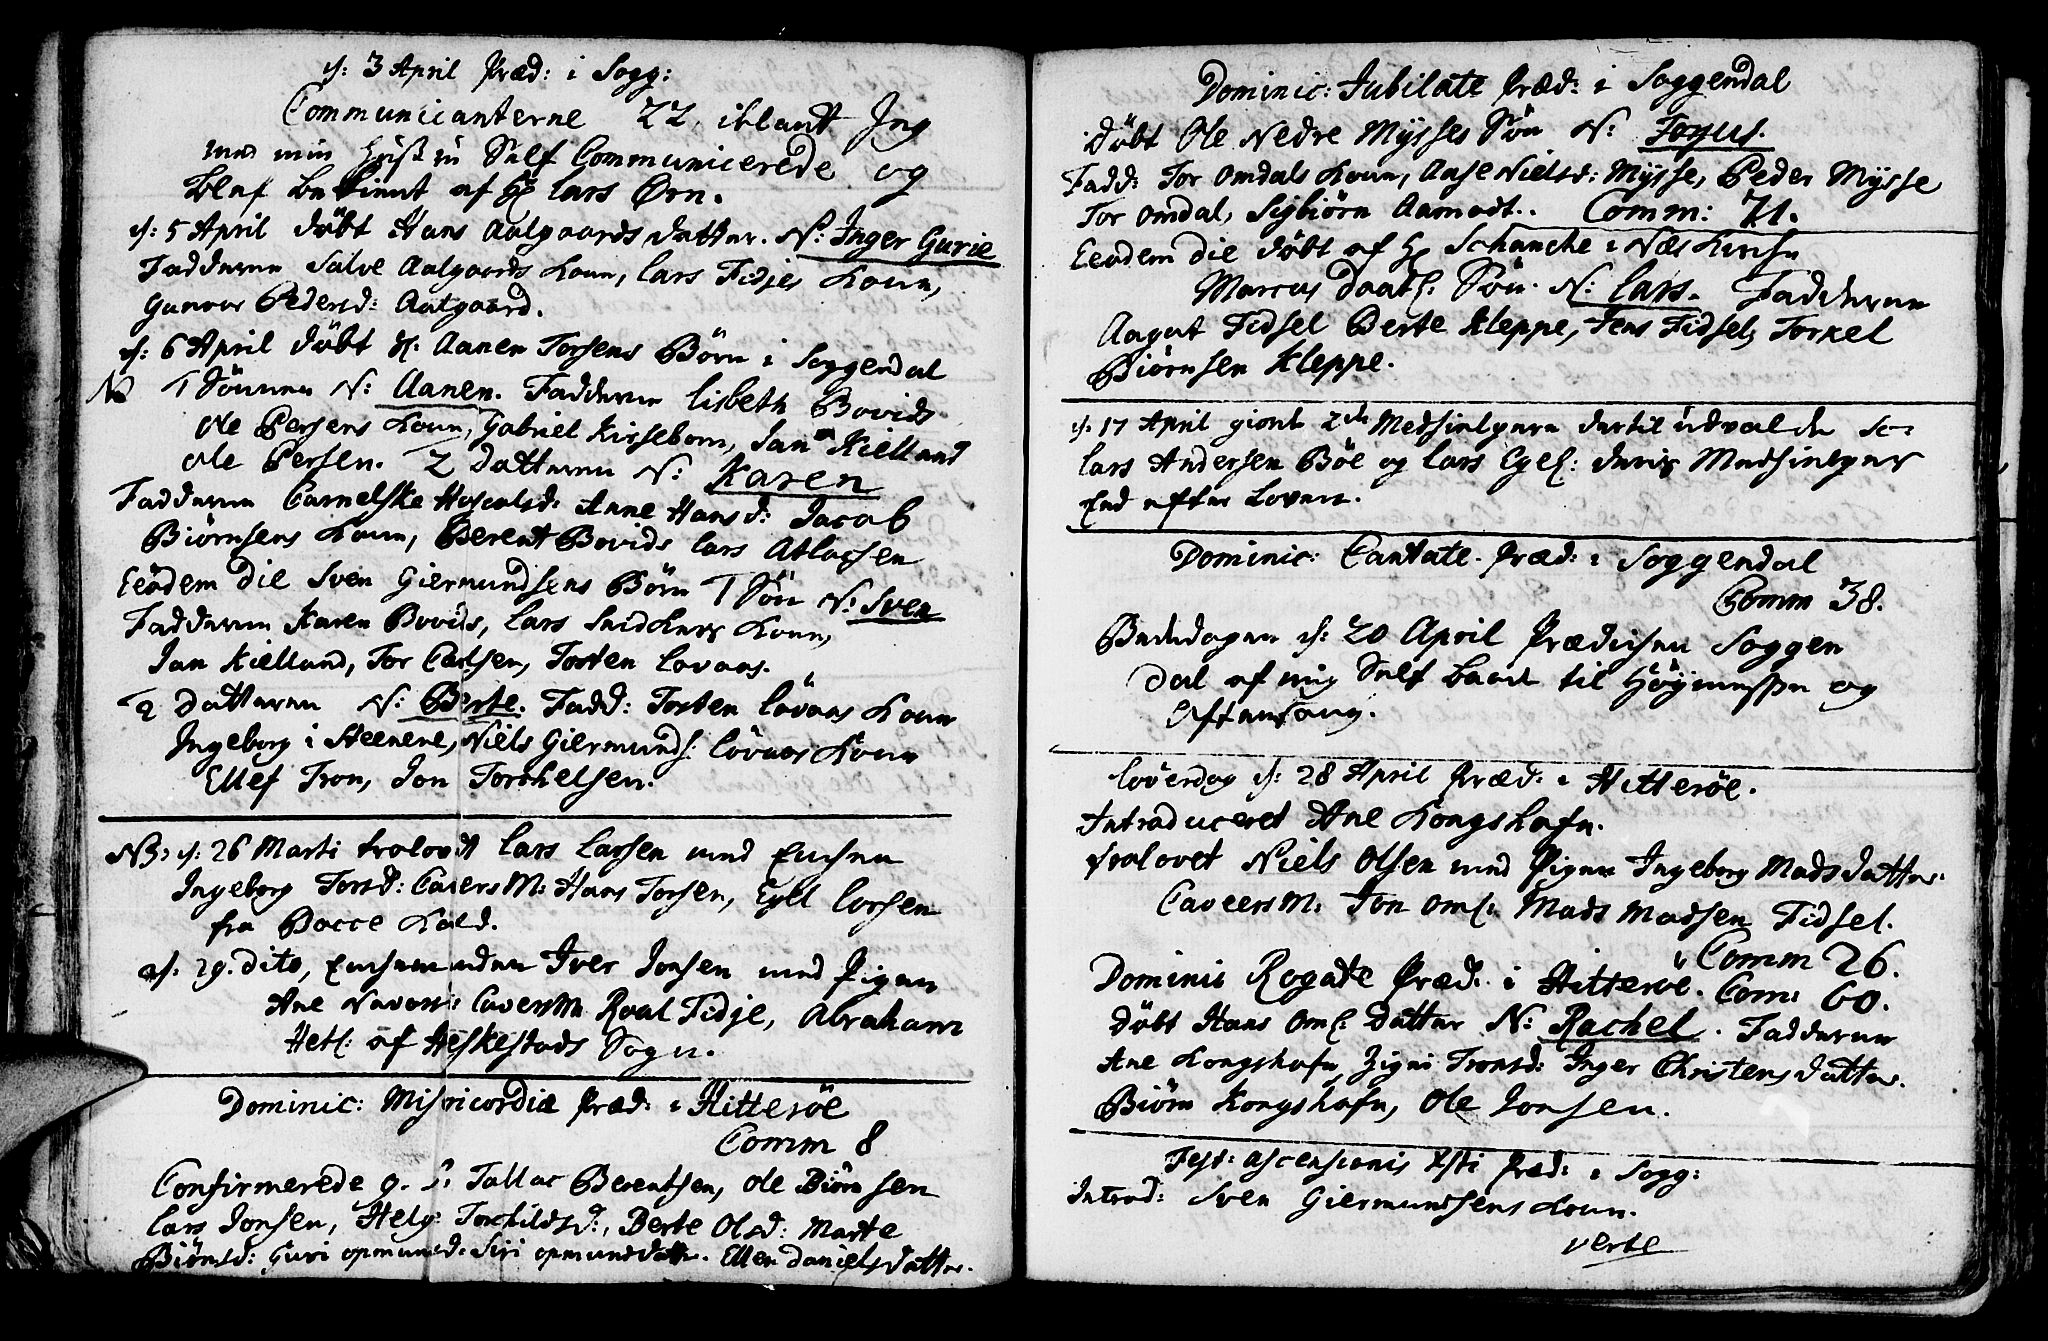 d: 3 April Præd: i Sogg:
Communicanterne 22, iblant Jeg
med min Self Communicerede og
blef betient af Hr Lars Ørn.
d: 5 April döbt Hans Aalgaards datter. N: Inger Gurie
Fadderne Salve Aalgaards Kone, Lars Fidjes Kone,
Gunvor Pedersd: Aalgaard.
d: 6 April döbt Aanen Torsens Börn i Soggendal
No 1 Sönnen N: Aanen. Fadderne Lisbeth Bovids
Ole Persens Kone, Gabriel Kirsebom, Jan Kielland
Ole Persen. 2 datteren N: Karen
Fadderne Carnelske Anne Hansd: Jacob
Biörnsens Kone, Berent Bovids Lars Atlacsen
Eeodem die Sven Giermundsens Börn 1 Sön N: Sven
Fadderne Karen Bovids, Lars Kone,
Jan Kielland, Tor Carlsen, Torsten Lovaas.
2 datteren N: Berte. Fadd: Torsten Lövaas Kone
Ingeborg i Steenene, Niels Giermunds: Lövaas Kone
Ellef Tron, Jon Torchelsen.
NB: d: 26 Marti trolovet Lars Larsen med Encken
Ingeborg Torsd: Cavers M: Hans Torsen, Eyel Larsen
fra Bacce Kald.
d: 29. dito, Enckemanden Iver Jonsen med Pigen
Ane Cavers M Roal Fidje, Abraham
Hetl: af Heskestads Sogn.
Dominic: Misricordiæ Præd: i Hitteröe
Comm 8
Confirmerede 9. S: Tallac Berentsen, Ole Biörnsen
Lars Jonsen, Helge Torchildsd:, Berte Olsd: Marte
Biörnsd: Guri opmunsd: Siri opmunsdatter. Ellen Danielsdatter.
Dominic: Jubilate Præd: i Soggendal
döbt Ole Nedre Mysses Sön N:
Fadd: Tor Omdals Kone, Aase Nielsd: Mysse, Peder Mysse
Tor Omdal, Sigbiörn Aamodt. Comm: 71.
Eeodem die döbt af Hr Schancke i Næs Kirke
Marcus Daatl: Sön N: Lars. Fadderne
Aagat Fidsel Berte Kleppe, Jens Fidsel, Torkel
Biörnsen Kleppe.
d: 17 April giorde 2de Medhielpere dertil udvalde Sc:
Lars Andersen Böe og Lars Egel: deris Medhielpers
Eed efter Loven.
Dominic: Cantate. Præd: i Soggendal
Comm 38.
Bededagen d: 20 April Prædichen Soggen
dal af mig Self baade til Höymesse og
Aftensang.
Löverdag d: 28 April Præd: i Hitteröe.
Introduceret Ane Kongshafn.
trolovet Niels Olsen med Pigen Ingeborg Madsdatter.
Caveers M: Jon Oml: Mads Madsen Fidsel.
Comm 26.
Dominic Rogate Præd: i Hitteröe. Com: 60.
döbt Hans Oml: datter N: Rachel. Fadderne
Ane Kongshafn, Zigni Tronsd: Inger Christensdatter.
Biörn Kongshafn, Ole Jonsen.
Fest: ascensionis Xsti Præd: i Sogg:
Introd: Sven Giermundsens Kone.
verte